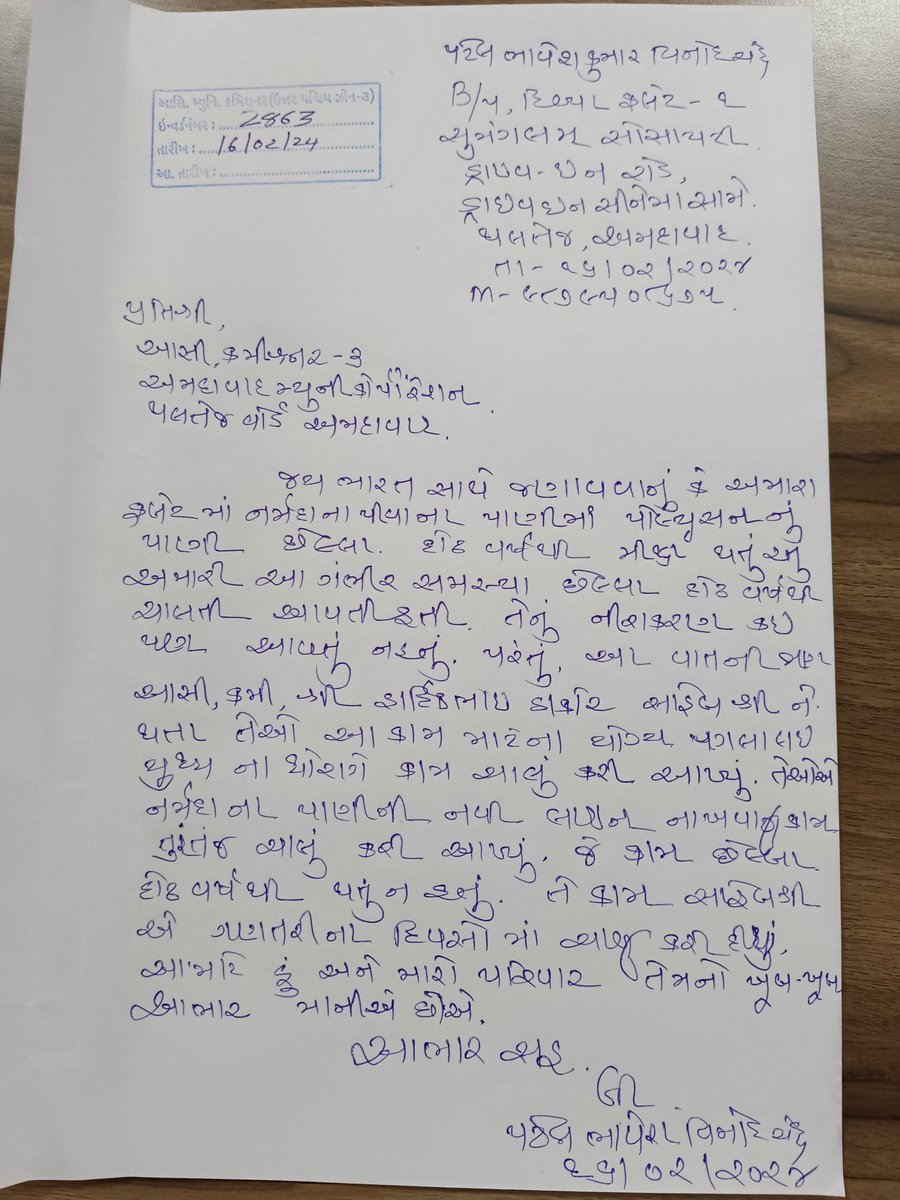 પટેલ ભાવેશકુમાર વિનોદચંદ્ર
B/૫, દિવ્યા ફ્લેટ - ૧
સુમંગલમ સોસાયટી
ડ્રાઇવ-ઇન રોડ,
ડ્રાઇવઇન સીનેમા સામે.
થલતેજ, અમદાવાદ.
તા- ૧૬/૦૨/૨૦૨૪
આસિ. મ્યુનિ. કમિશનર (ઉત્તર પશ્ચિમ ઝોન-૩)
ઇન્વર્ડનંબર: 2863
તારીખ: 16/02/24
આ. તારીખ:
પ્રતિશ્રી,
આસી. કમીશ્નર - ૩
અમદાવાદ મ્યુની કોર્પોરેશન.
થલતેજ વોર્ડ અમદાવાદ.
જય ભારત સાથે જણાવવાનું કે અમારા
ફ્લેટમાં નર્મદાના પીવાના પાણીમાં પોલ્યુસનનું
પાણી છેલ્લા દોઢ વર્ષથી મીક્ષ થતું હતું
અમારી આ ગંભીર સમસ્યા છેલ્લા દોઢ વર્ષથી
ચાલતી આવતી હતી. તેનું નીરાકરણ કઇ
પણ આવતું નહતું. પરંતું, આ વાતની જાણ
આસી. કમી. શ્રી સાહેબ શ્રી ને
થતા તેઓ આ કામ માટેના યોગ્ય પગલા લઇ
યુધ્ધ ના ધોરણે કામ ચાલું કરી આપ્યું. તેઓએ
નર્મદાના પાણીની નવી લાઇન નાખવાનું કામ
તુરંતજ ચાલું કરી આપ્યું. જે કામ છેલ્લા
દોઢ વર્ષથી થતું ન હતું. તે કામ સાહેબશ્રી
એ ગણતરીના દિવસો માં ચાલુ કરી દીધું.
આ માટે હું અને મારો પરિવાર તેમનો ખૂબ-ખૂબ
આભાર માનીએ છીએ.
આભાર સહ.
પટેલ ભાવેશ વિનોદચંદ્ર
૧૬/૦૨/૨૦૨૪